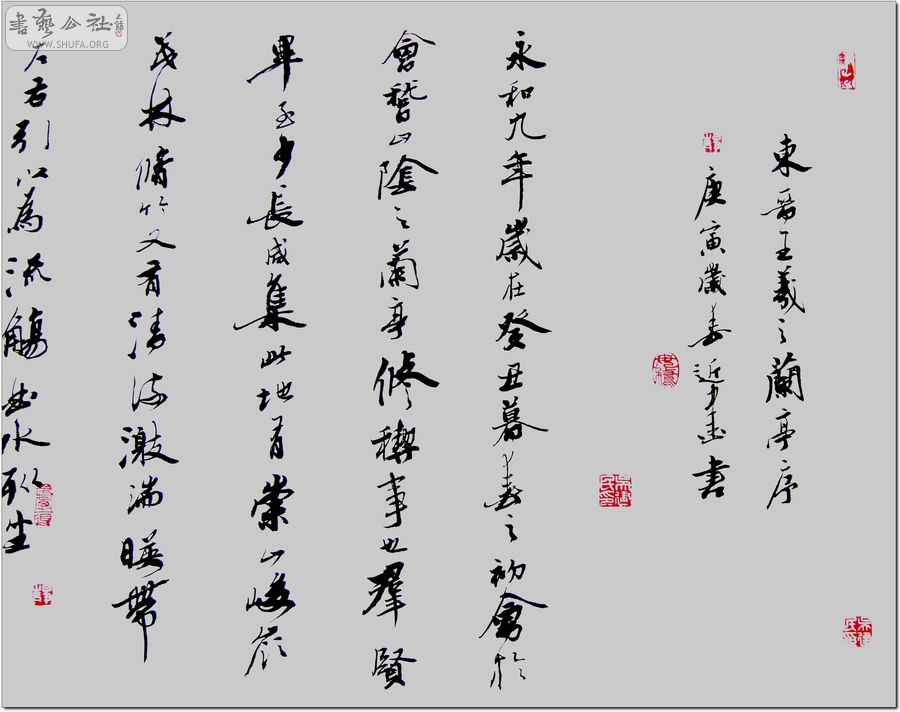 東晉王羲之蘭亭序
庚寅歲春近少書
永和九年歲在癸丑暮春之初會於
會稽山陰之蘭亭修稧事也羣賢
畢至少長咸集此地有崇山峻領
茂林脩竹又有清流激湍暎帶
左右引以為流觴曲水列坐
書藝公社
WWW.SHUFA.ORG